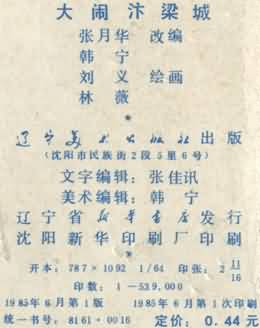 大闹汴梁城
张月华 改编
韩宁
刘义 绘画
林薇
*
辽宁美术出版社出版
(沈阳市民族街2段5里6号)
文字编辑：张佳讯
美术编辑：韩宁
辽宁省新华书店发行
沈阳新华印刷厂印刷
*
开本：787×1092 1/64 印张：2 11/16
印数：1—539,000
1985年6月第1版 1985年6月第1次印刷
统一书号：8161·0016 定价：0.44元